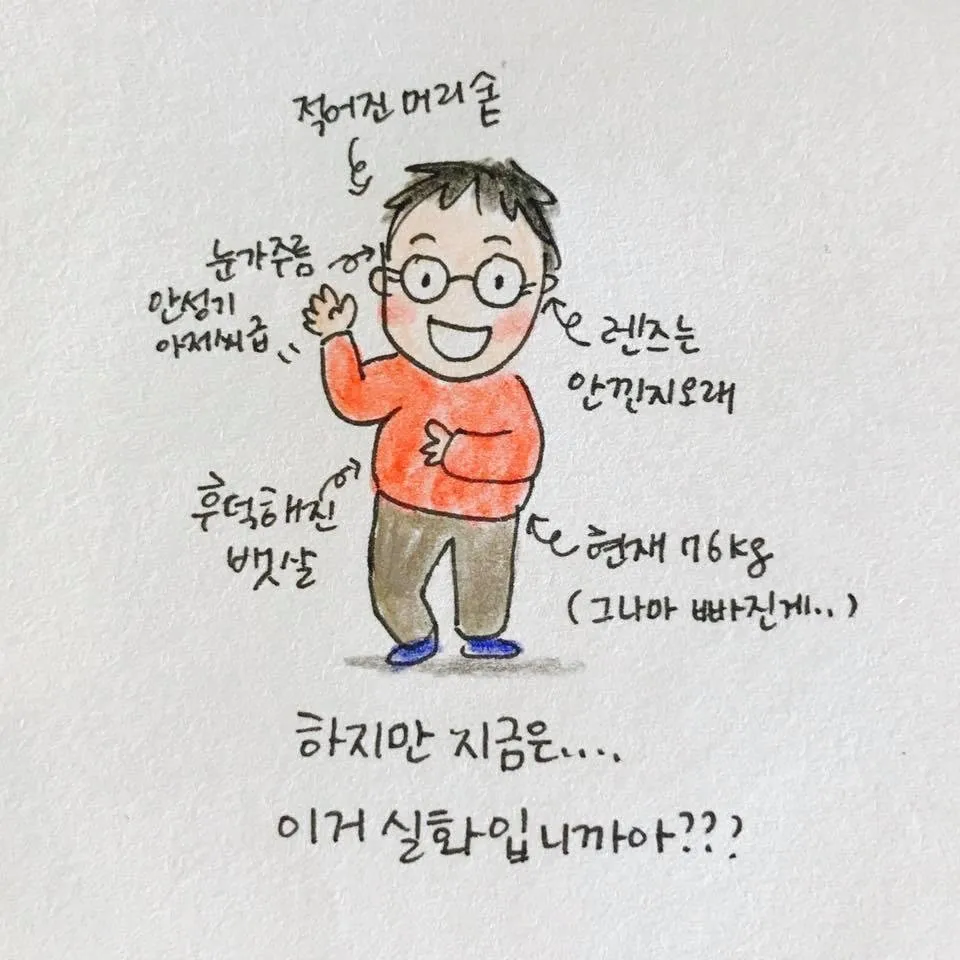 적어진 머리숱
눈가주름
안성기
아저씨급
렌즈는
안낀지오래
후덕해진
뱃살
현재 76kg
(그나마 빠진게..)
하지만 지금은....
이거 실화입니까아???